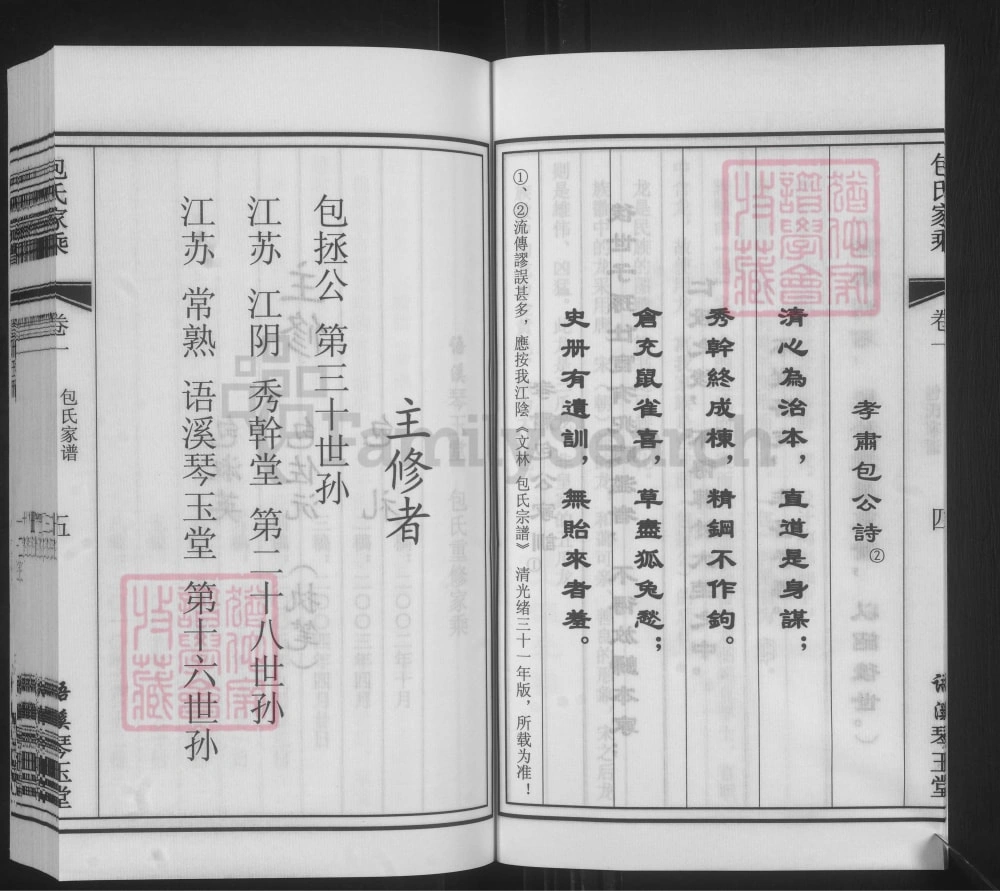 包氏家乘
卷一
四
语溪琴玉堂
孝肅包公詩②
清心為治本，直道是身謀；
秀幹終成棟，精鋼不作鉤。
倉充鼠雀喜，草盡狐兔愁；
史册有遺訓，無貽來者羞。
①、②流傳謬誤甚多，應按我江陰《文林 包氏宗譜》 清光绪三十一年版，所载为准！
主修者
包拯公 第三十世孙
江苏 江阴 秀幹堂 第二十八世孙
江苏 常熟 语溪琴玉堂 第十六世孙
包氏家乘
卷一
包氏家谱
五
语溪琴玉堂
FamilySearch